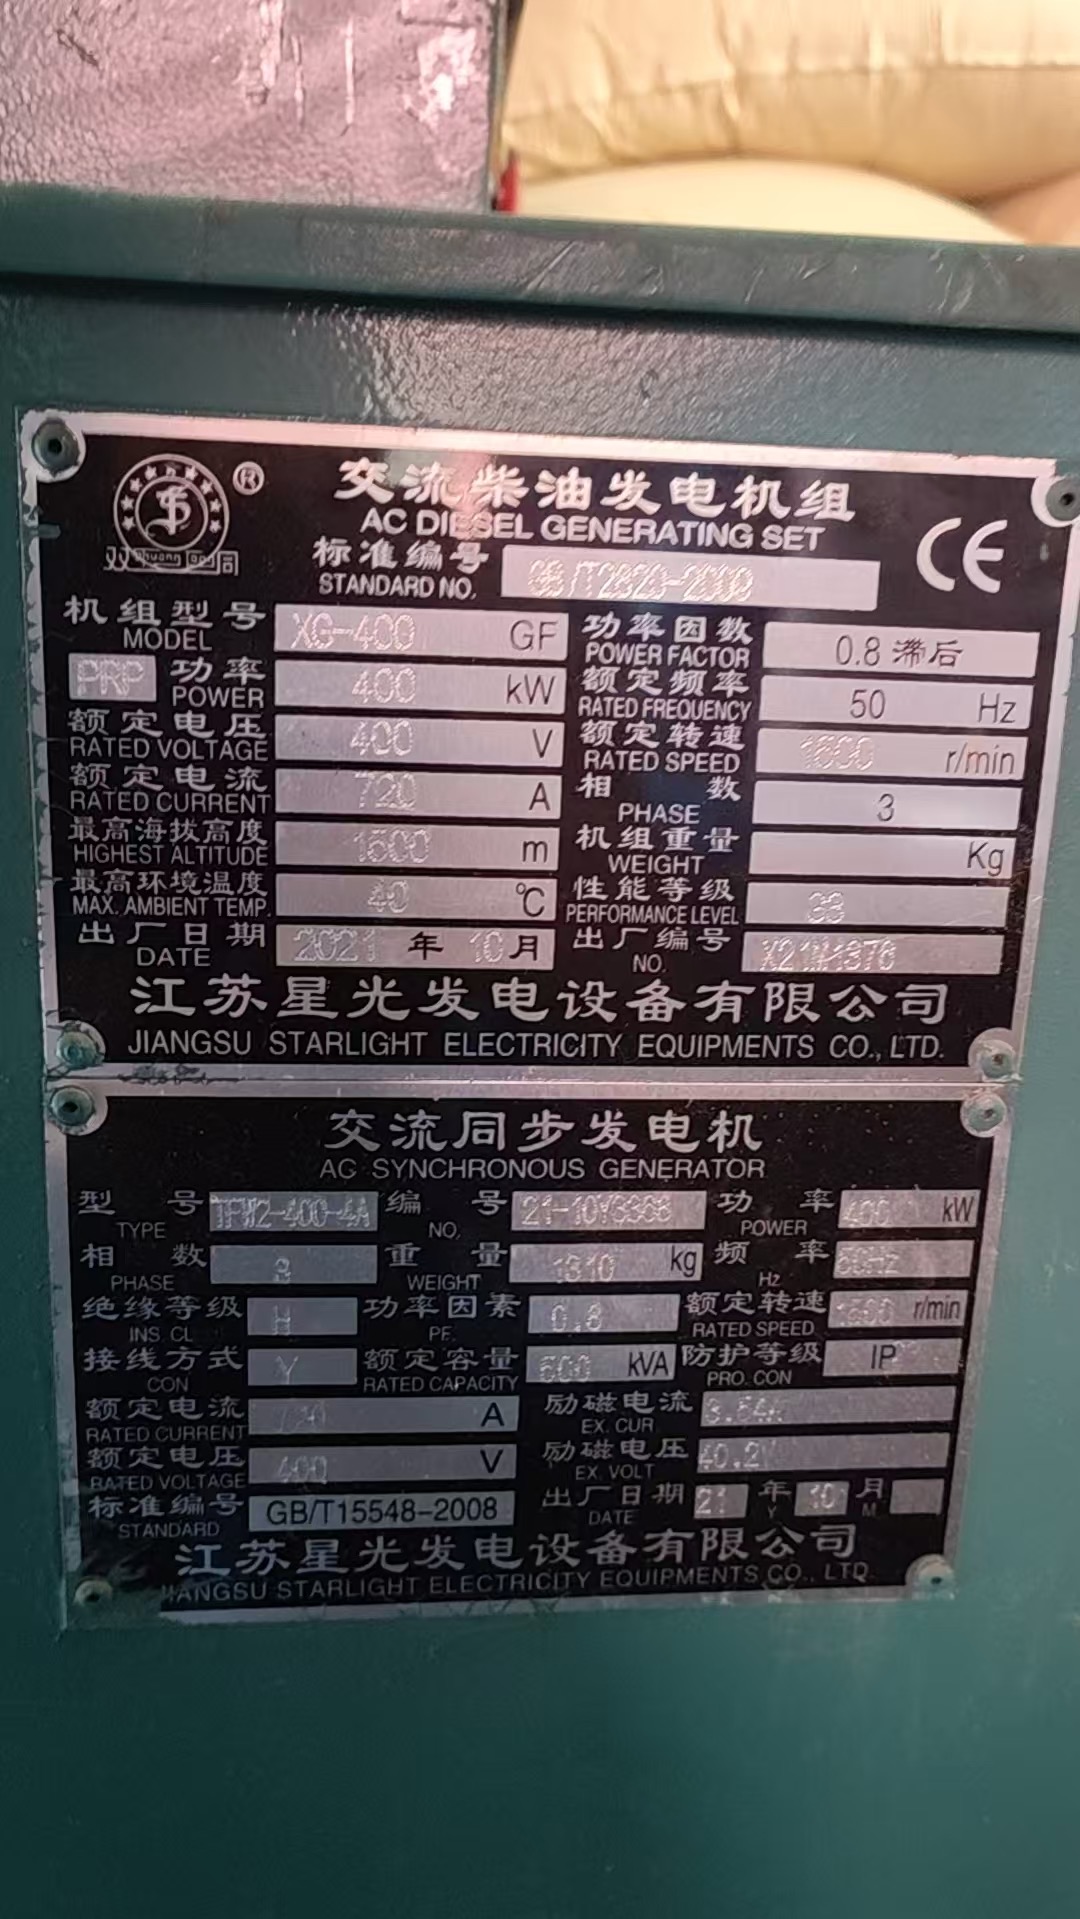 双 Shuang Tong 同
®
交流柴油发电机组
AC DIESEL GENERATING SET
CE
标准编号 GB/T2820-2009
STANDARD NO.
机组型号 XG-400 GF 功率因数 0.8 滞后
MODEL POWER FACTOR
PRP 功率 400 kW 额定频率 50 Hz
POWER RATED FREQUENCY
额定电压 400 V 额定转速 1500 r/min
RATED VOLTAGE RATED SPEED
额定电流 720 A 相数 3
RATED CURRENT PHASE
最高海拔高度 1500 m 机组重量 Kg
HIGHEST ALTITUDE WEIGHT
最高环境温度 40 ℃ 性能等级 G3
MAX. AMBIENT TEMP. PERFORMANCE LEVEL
出厂日期 2021 年 10 月 出厂编号
DATE NO.
江苏星光发电设备有限公司
JIANGSU STARLIGHT ELECTRICITY EQUIPMENTS CO., LTD.
交流同步发电机
AC SYNCHRONOUS GENERATOR
型号 TFW2-400-4A 编号 功率 400 kW
TYPE NO. POWER
相数 3 重量 kg 频率 50Hz
PHASE WEIGHT Hz
绝缘等级 H 功率因素 0.8 额定转速 1500 r/min
INS. CL PF. RATED SPEED
接线方式 Y 额定容量 500 kVA 防护等级 IP
CON RATED CAPACITY PRO. CON
额定电流 720 A 励磁电流
RATED CURRENT EX. CUR
额定电压 400 V 励磁电压 40.2V
RATED VOLTAGE EX. VOLT
标准编号 GB/T15548-2008 出厂日期 21 年 10 月
STANDARD DATE Y M
江苏星光发电设备有限公司
JIANGSU STARLIGHT ELECTRICITY EQUIPMENTS CO., LTD.